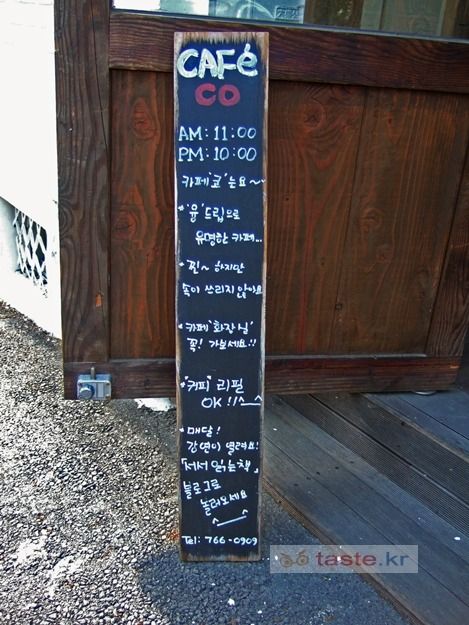 CAFé
CO
AM: 11:00
PM: 10:00
카페'코'는요~
*'융'드립으로
유명한 카페...
*찐~ 하지만
속이 쓰리지 않아요
*카페'화장님'
꼭! 가보세요!!
*"커피" 리필
OK!!^_^
*매달!
강연이 열려요!
「서서 읽는 책」
블로그로
놀러오세요
Tel: 766-0909
taste.kr